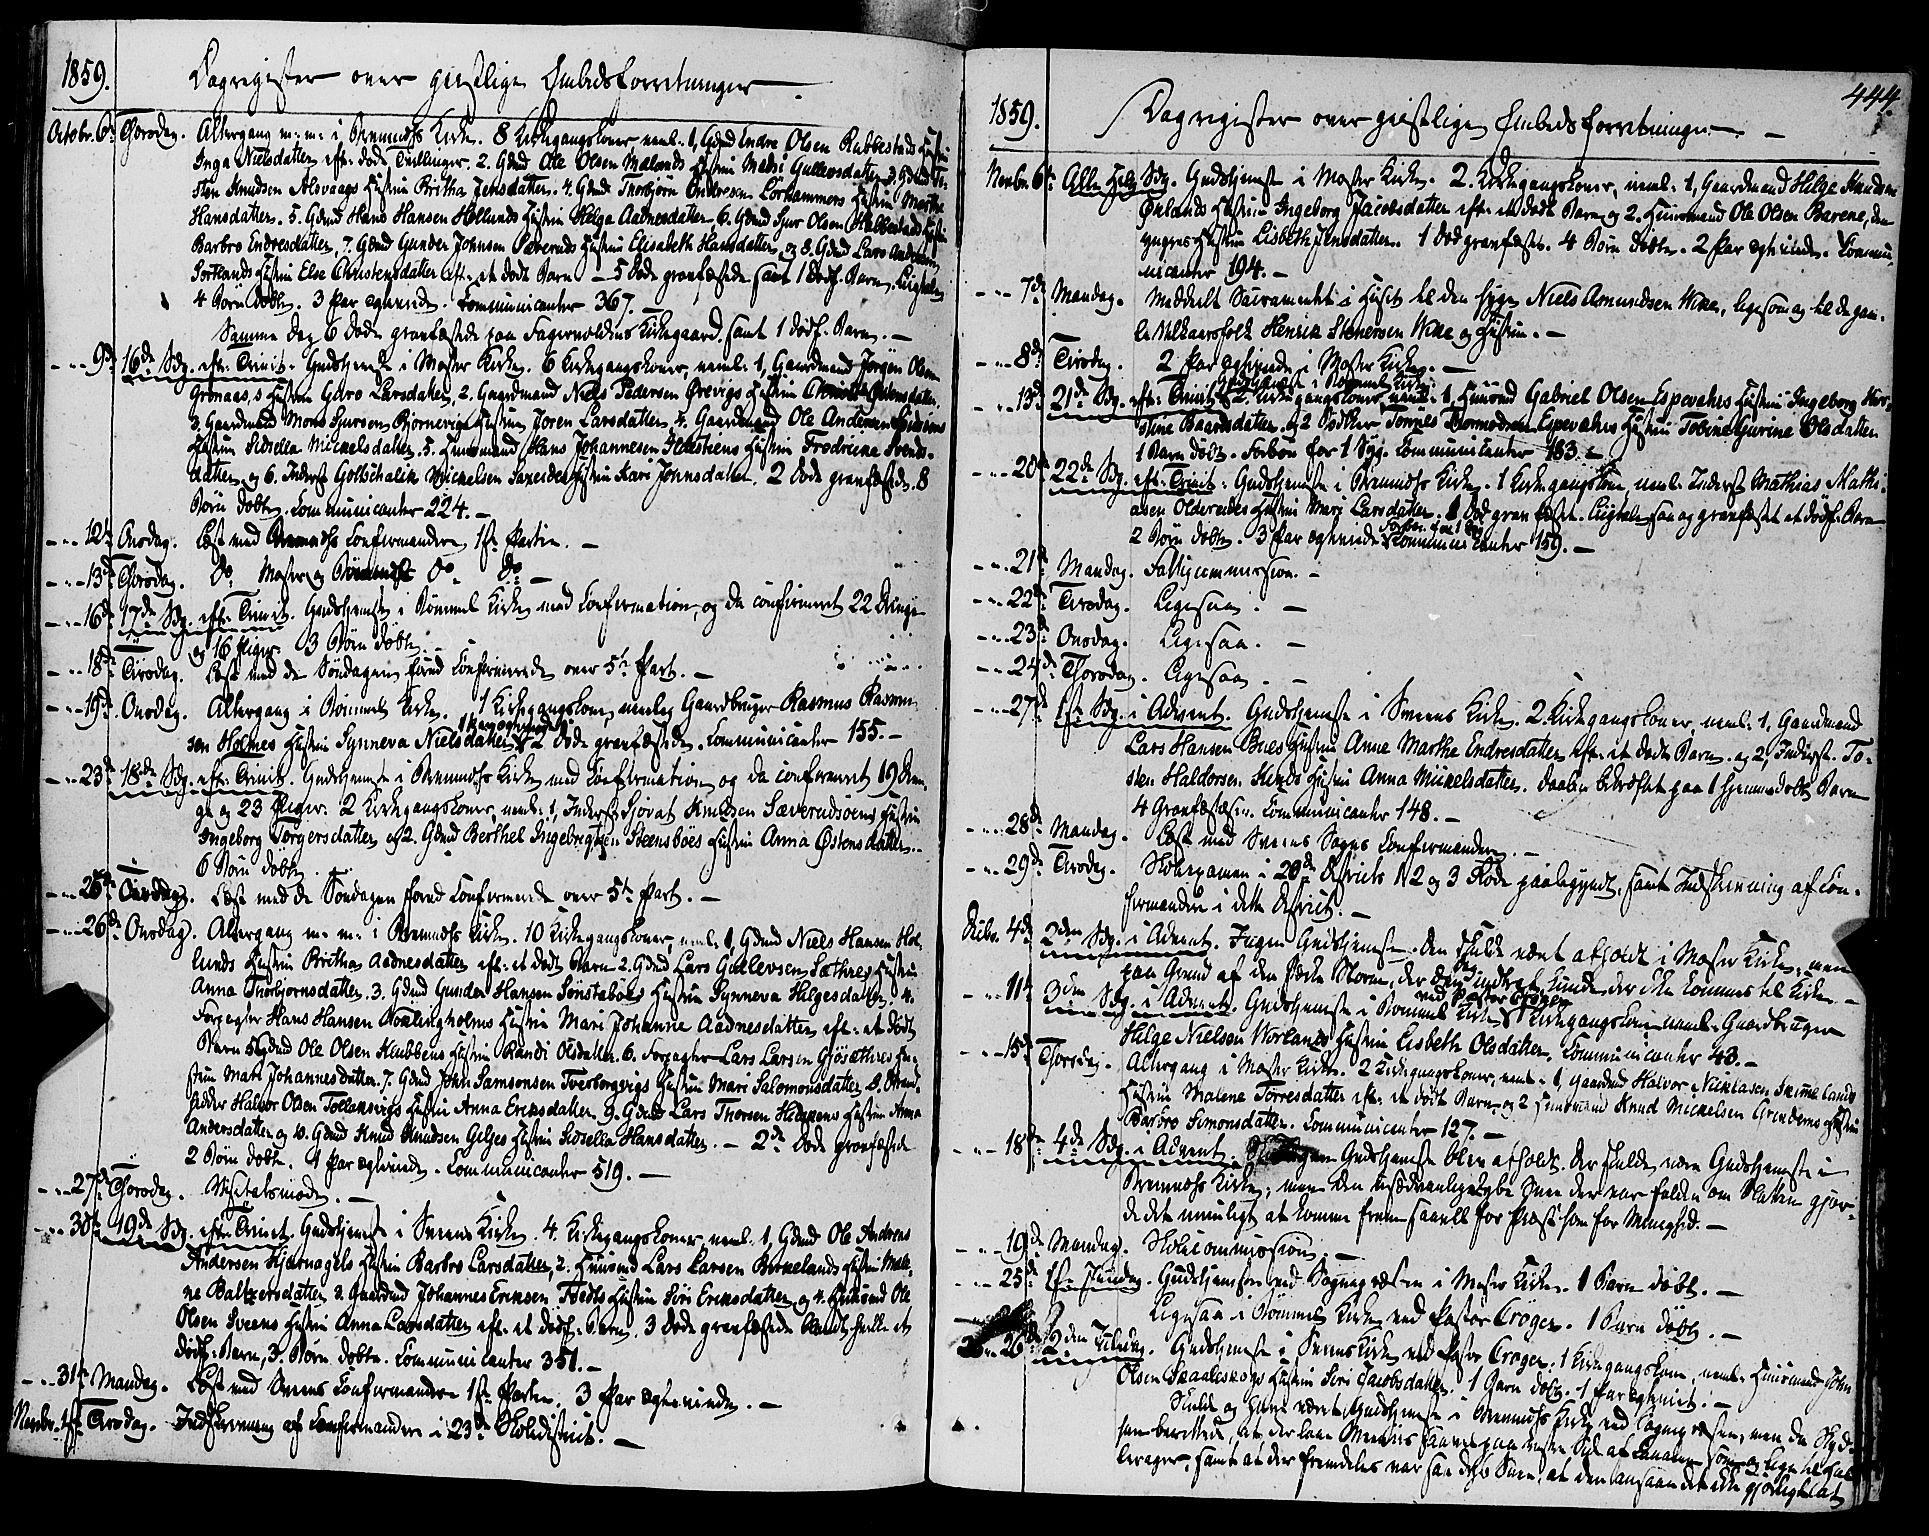 1859. Dagregister over geistlige Embedsforretninger.
Octobr. 6te Thorsdag. Altergang m: m: i Bremnæs Kirke. 8 Kirkegangskoner neml: 1, Gdmd Endre Olsen Rubbestads Hustru
Inga Nielsdatter eft: døde Tvillinger. 2. Gdmd Ole Olsen Hustru Mari Gullevsdatter 3. Gdmd
sten Knudsen Alsvaags Hustru Britha Jensdatter. 4. Gdmd Thorbjørn Endresen Hustru Martha
Hansdatter. 5. Gdmd Hans Hansen Hollunds Hustru Helga Aadnesdatter 6. Gdmd Sjur Olsen Rubbestads Hustru
Barbro Endresdatter, 7. Gdmd Gunder Johnsen Hustru Elisabeth Hansdatter, og 8. Gdmd Lars Andersen
Hustru Else Christensdatter eft: et dødt Barn – 5 Døde gravfæstede samt 1 dødf: Barn. Ligtale
4 Børn døbte. 3 Par egteviede. Communicanter 367. –
Samme Dag 6 Døde gravfæstede paa Kirkegaard, samt 1 dødf. Barn. –
- - 9de 16de Sdg. eft: Trinit. Gudstjeneste i Moster Kirke. 6 Kirkegangskoner, neml: 1, Gaardmand Jørgen Olsen
Grönaas's Hustru Guro Larsdatter, 2. Gaardmand Niels Pedersen Ørevigs Hustru Østensdatter
3. Gaardmand Mons Sjursen Bjørnevigs Hustru Jøren Larsdatter, 4. Gaardmand Ole Andersen
Hustru Sidsella Mickelsdatter. 5. Huusmand Hans Johannesen Hustru Fredricca Svends-
datter og 6. Inderst Gottschalck Mickelsen Hustru Kari Johnsdatter. 2 Døde gravfæstede. 8
Børn døbte. Communicanter 224. –
- - 12te Onsdag. Læst med Bremnæs Confirmander 1ste Partie. –
- - 13de Thorsdag. Do Moster og Do Do –
- - 16de 17de Sdg. eft: Trinit. Gudstjeneste i Bømmel Kirke med Confirmation, og da confirmeret 22 Drenge
og 16 Piger. 3 Børn døbte. –
- - 18de Tirsdag. Læst med de Søndagen forud Confirmerede over 5te Part. –
- - 19de Onsdag. Altergang i Bømmel Kirke. 1 Kirkegangskone, nemlig Gaardbruger Rasmus Rasmus-
sen Holmes Hustru Synneva Nielsdatter 1 Par egteviede 2 Døde gravfæstede. Communicanter 155. –
- - 23de 18de Sdg. eft: Trinit. Gudstjeneste i Bremnæs Kirke med Confirmation og da confirmeret 19 Dren-
ge og 23 Piger. 2 Kirkegangskoner, neml: 1, Inderst Sjovat Knudsen Sæverudsøens Hustru
Ingeborg Torgersdatter og 2. Gdmd Berthel Ingebrigtsen Steensbøes Hustru Anna Østensdatter. -
6 Børn døbte.
- - 25de Læst med de Søndagen forud Confirmerede over 5te Part. –
- - 26de Onsdag. Altergang m: m: i Bremnæs Kirke. 10 Kirkegangskoner, neml: 1, Gdmd Niels Hansen Hol-
lunds Hustru Britha Aadnesdatter eft: et dødt Barn 2. Gdmd Lars Gullevsen Sæthres Hustru
Anna Thorbjørnsdatter. 3. Gdmd Gunder Hansen Sønstabøes Hustru Synneva Helgesdatter. 4.
Forpagter Hans Hansen Hustru Mari Johanna Aadnesdatter, eft: et dødt
Barn 5. Gdmd Ole Olsen Klubbens Hustru Randi Olsdatter. 6. Forpagter Lars Larsen Gjøsæthres Hu-
stru Mari Johannesdatter. 7. Gdmd John Samsonsen Tverborgvigs Hustru Mari Salomonsdatter 8. Strand-
sidder Halvor Olsen Tollaksvigs Hustru Anna Eriksdatter. 9. Gdmd Lars Thorsen Hustru Anna
Andersdatter og 10. Gdmd Knud Knudsen Gelges Hustru Sidsella Hansdatter. – 2de Døde gravfæstede
2 Børn døbte. 1 Par egteviede. Communicanter 519. –
- - 27de Thorsdag. –
- - 30te 19de Sdg. eft: Trinit. Gudstjeneste i Sveens Kirke. 4. Kirkegangskoner, neml: 1, Gdmd Ole Andreas
Andersen Hjernagels Hustru Barbro Larsdatter, 2. Huusmd Lars Larsen Birkelands Hustru Male-
ne Baltzersdatter 3. Gaardmd Johannes Eriksen Hustru Siri Eriksdatter, og 4. Huusmd Ole
Olsen Sveens Hustru Anna Larsdatter eft: et dødf: Barn. 3 Døde gravfæstede et
dødf: Barn, 3. Børn døbte. Communicanter 351. –
- - 31te Mandag. Læst med Sveens Confirmander 1ste Partie. 3 Par egteviede. –
Novbr. 1ste Tirsdag. Indskrivning af Confirmander i 23de Skoledistrict. –
444.
1859. Dagregister over geistlige Embedsforretninger. –
Novbr. 6te Alle Helg: Sdg. Gudstjeneste i Moster Kirke. 2. Kirkegangskoner, neml: 1, Gaardmand Helge Knudsen
Hustru Ingeborg Jacobsdatter eft: et dødt Barn, og 2. Huusmand Ole Olsen Barene, den
yngres Hustru Lisbeth Jensdatter. 1 Død gravfæstet. 4 Børn døbte. 2 Par egteviede. Commu-
nicanter 194. –
- - 7de Mandag. Meddeelt Sacramentet i Huset til den syge Niels Asmundsen Wika, ligesom og til de gam-
le Vilkaarsfolk Henrik Stenersen Wika og Hustru. –
- - 8de Tirsdag. 2 Par egteviede i Moster Kirke. –
- - 13de 21de Sdg. eft: Trinit. Gudstjeneste i Bømmel Kirke. 2. Kirkegangskoner, neml: 1, Huusmd Gabriel Olsen Espevahrs Hustru Ingeborg Kir-
stine Baardsdatter og 2 Bødker Tønnes Espevahrs Hustru Tobine Gurine Olsdatter
1 Barn døbt. Forbøn for 1 Syg. Communicanter 183. –
- - 20de 22de Sdg. eft: Trinit: Gudstjeneste i Bremnæs Kirke. 1 Kirkegangskone, neml: Inderst Mathias Mathi-
asen Hustru Mari Larsdatter. 1 Død gravfæstet. Ligtale, saa og gravfæstet et dødf: Barn
2 Børn døbte. 3 Par egteviede Forbøn for 1 Syg Communicanter 159. –
- - 21de Mandag. Fattigcommission. –
- - 22de Tirsdag. Ligesaa. –
- - 23de Onsdag. Ligesaa. –
- - 24de Thorsdag. Ligesaa. –
- - 27de 1ste Sdg. i Advent. Gudstjeneste i Sveens Kirke. 2. Kirkegangskoner, neml: 1, Gaardmand
Lars Hansen Bues Hustru Anne Marthe Endresdatter eft: et dødt Barn. og 2, Inderst To-
sten Haldorsen Hustru Anna Mickelsdatter. Daaben bekræftet paa 1 hjemmedøbt Barn
4 Gravfæstelser. Communicanter 148. –
- - 28de Mandag. Læst med Sveens Sogns Confirmander. –
- - 29de Tirsdag. Skoleexamen i 20de District No 2 og 3 Rode paabegyndt, samt Indskrivning af Con-
firmander i dette District. –
Decbr. 4de 2den Sdg. i Advent. Ingen Gudstjeneste. Den skulde været afholdt i Moster Kirke, men
paa Grund af den stærke Storm, der indtraf, kunde der ikke kommes til Kirke. –
- - 11te 3die Sdg. i Advent. Gudstjeneste i Bømmel Kirke ved Pastor Crøger 1 Kirkegangskone neml: Gaardbruger
Helge Nielsen Vorlands Hustru Lisbeth Olsdatter, Communicanter 43. –
- - 15de Thorsdag. Altergang i Moster Kirke. 2 Kirkegangskoner, neml: 1, Gaardmd Halvor Nicklasen
Hustru Malene Torresdatter eft: et dødt Barn, og 2 Huusmand Knud Mickelsen Hustru
Barbro Simonsdatter. Communicanter 127. –
- - 18de 4de Sdg. i Advent. Ingen Gudstjeneste blev afholdt. Der skulde være Gudstjeneste i
Bremnæs Kirke, men den usædvanlige dybe Snee der var falden om Natten gjor-
de det umuligt at komme frem saavel for Præst som for Menighed. –
- - 19de Mandag. Skolecommission. –
- - 25de 1ste Juledag. Gudstjeneste ved Sognepræsten i Moster Kirke. 1 Barn døbt. –
Ligesaa i Bømmel Kirke ved Pastor Crøger. 1 Barn døbt. –
- - 26de 2den Juledag. Gudstjeneste i Sveens Kirke ved Pastor Crøger. 1 Kirkegangskone, neml: Huusmand John
Olsen Hustru Siri Jacobsdatter. 1 Barn døbt. 1 Par egteviet. –
Skulde og have været Gudstjeneste i Bremnæs Kirke ved Sognepræsten, men da Skyds-
berettede, at der laae
samt at der fremdeles var saa dyb Snee, at den ansaae det ikke gjørligt at